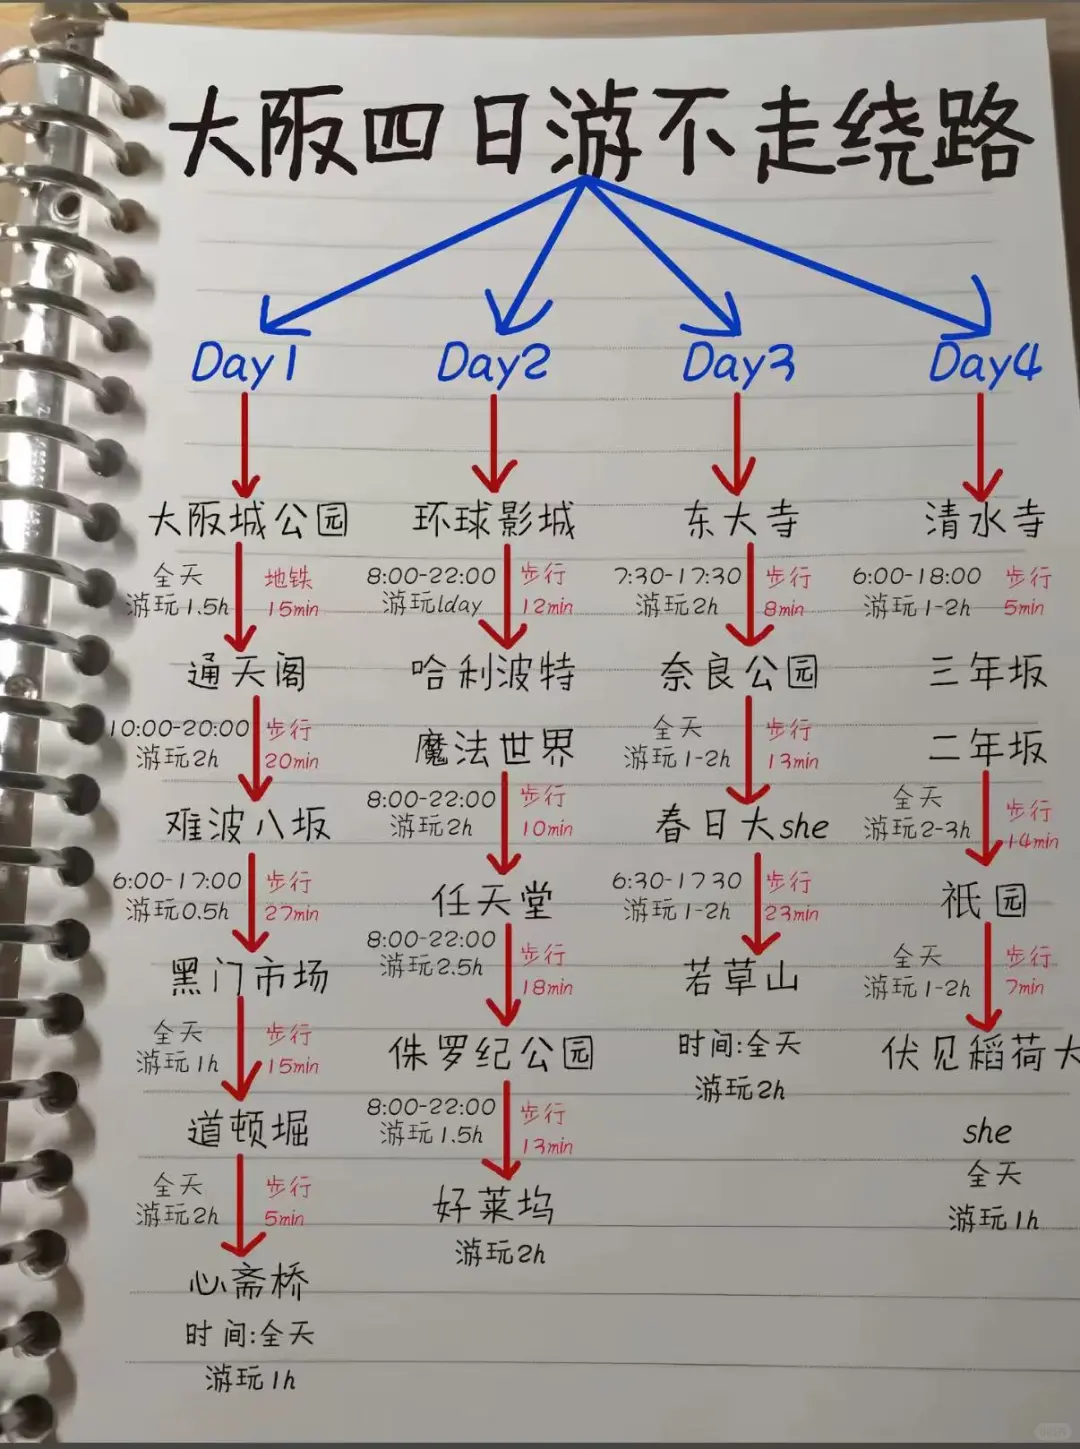 大阪四日游不走绕路
Day1
Day2
Day3
Day4
大阪城公园
全天
游玩1.5h
地铁
15min
通天阁
10:00-20:00
游玩2h
步行
20min
难波八坂
6:00-17:00
游玩0.5h
步行
27min
黑门市场
全天
游玩1h
步行
15min
道顿堀
全天
游玩2h
步行
5min
心斋桥
时间:全天
游玩1h
环球影城
8:00-22:00
游玩1day
步行
12min
哈利波特
魔法世界
8:00-22:00
游玩2h
步行
10min
任天堂
8:00-22:00
游玩2.5h
步行
18min
侏罗纪公园
8:00-22:00
游玩1.5h
步行
13min
好莱坞
游玩2h
东大寺
7:30-17:30
游玩2h
步行
8min
奈良公园
全天
游玩1-2h
步行
13min
春日大she
6:30-1730
游玩1-2h
步行
23min
若草山
时间:全天
游玩2h
清水寺
6:00-18:00
游玩1-2h
步行
5min
三年坂
二年坂
全天
游玩2-3h
步行
14min
祇园
全天
游玩1-2h
步行
7min
伏见稻荷大
she
全天
游玩1h